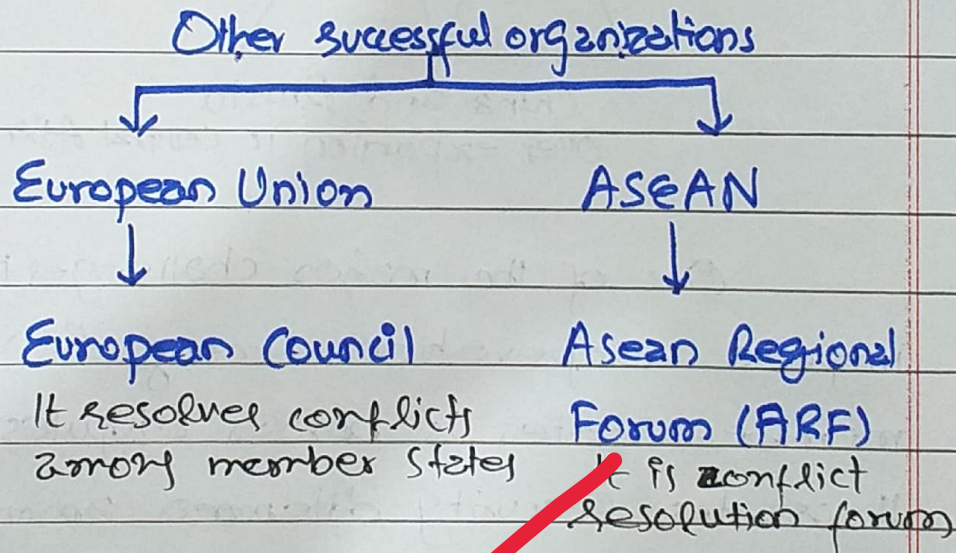 Other successful organizations
European Union
ASEAN
European Council
It resolves conflicts
among member states
Asean Regional
Forum (ARF)
It is conflict
resolution forum